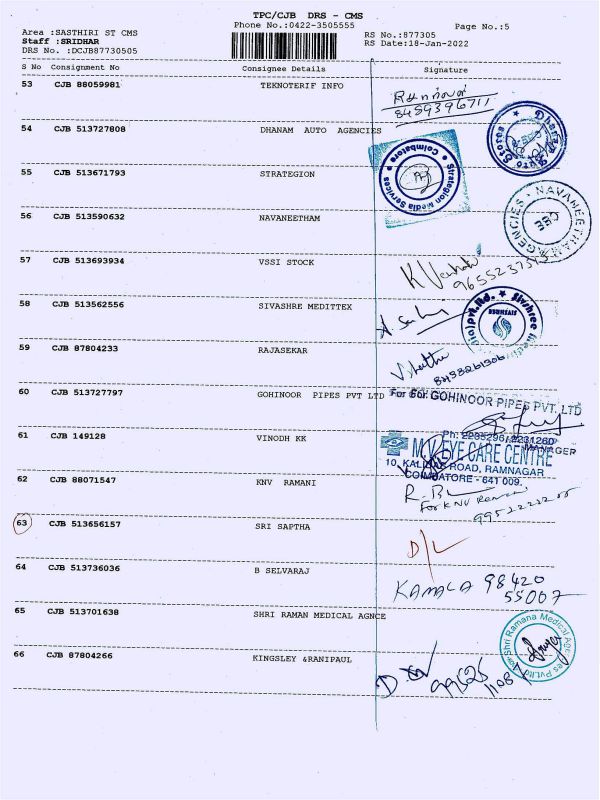 TPC/CJB DRS - CMS
Area :SASTHIRI ST CMS
Phone No.:0422-3505555
Page No.:5
Staff :SRIDHAR
RS No.:877305
DRS No. :DCJB87730505
RS Date:18-Jan-2022
S No Consignment No Consignee Details Signature
53 CJB 88059981 TEKNOTERIF INFO
8459396711
54 CJB 513727808 DHANAM AUTO AGENCIES
55 CJB 513671793 STRATEGION
Strategion Media Services
• Coimbatore •
56 CJB 513590632 NAVANEETHAM
57 CJB 513693934 VSSI STOCK
58 CJB 513562556 SIVASHRE MEDITTEX
59 CJB 87804233 RAJASEKAR
60 CJB 513727797 GOHINOOR PIPES PVT LTD
For GOHINOOR PIPES PVT. LTD
MANAGER
61 CJB 149128 VINODH KK
Ph: 2235296, 2231260
M.V. EYE CARE CENTRE
ROAD, RAMNAGAR
COIMBATORE - 641 009.
62 CJB 88071547 KNV RAMANI
For KNV Ramani
63 CJB 513656157 SRI SAPTHA
D/L
64 CJB 513736036 B SELVARAJ
KAMALA 98420
55007
65 CJB 513701638 SHRI RAMAN MEDICAL AGNCE
for Shri Ramana Medical Agencies Pvt.Ltd
66 CJB 87804266 KINGSLEY &RANIPAUL
99525